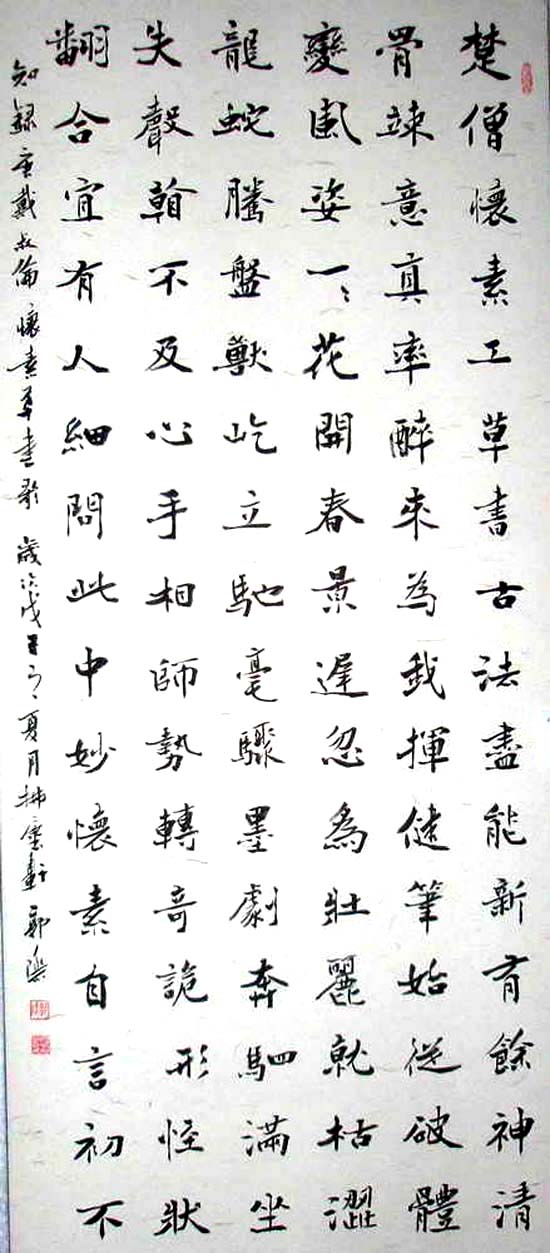 楚僧懷素工草書古法盡能新有餘神清
骨竦意真率醉來為我揮健筆始從破體
變風姿一々花開春景遲忽為壯麗就枯澀
龍蛇騰盤獸屹立馳毫驟墨劇奔駟滿坐
失聲看不及心手相師勢轉奇詭形怪狀
翻合宜有人細問此中妙懷素自言初不
知錄唐戴叔倫懷素草書歌 歲次戊子之夏月拂塵軒郭